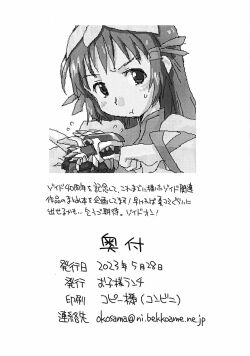 ゾイド40周年を記念して、これまでに描いたゾイド関連
作品のまとめ本を企画してます！早ければ夏コミくらいに
出せるかも… 乞うご期待。ゾイドオン！
奥付
発行日 2023年5月28日
発行 お子様ランチ
印刷 コピー様(コンビニ)
連絡先 okosama@ni.bekkoame.ne.jp